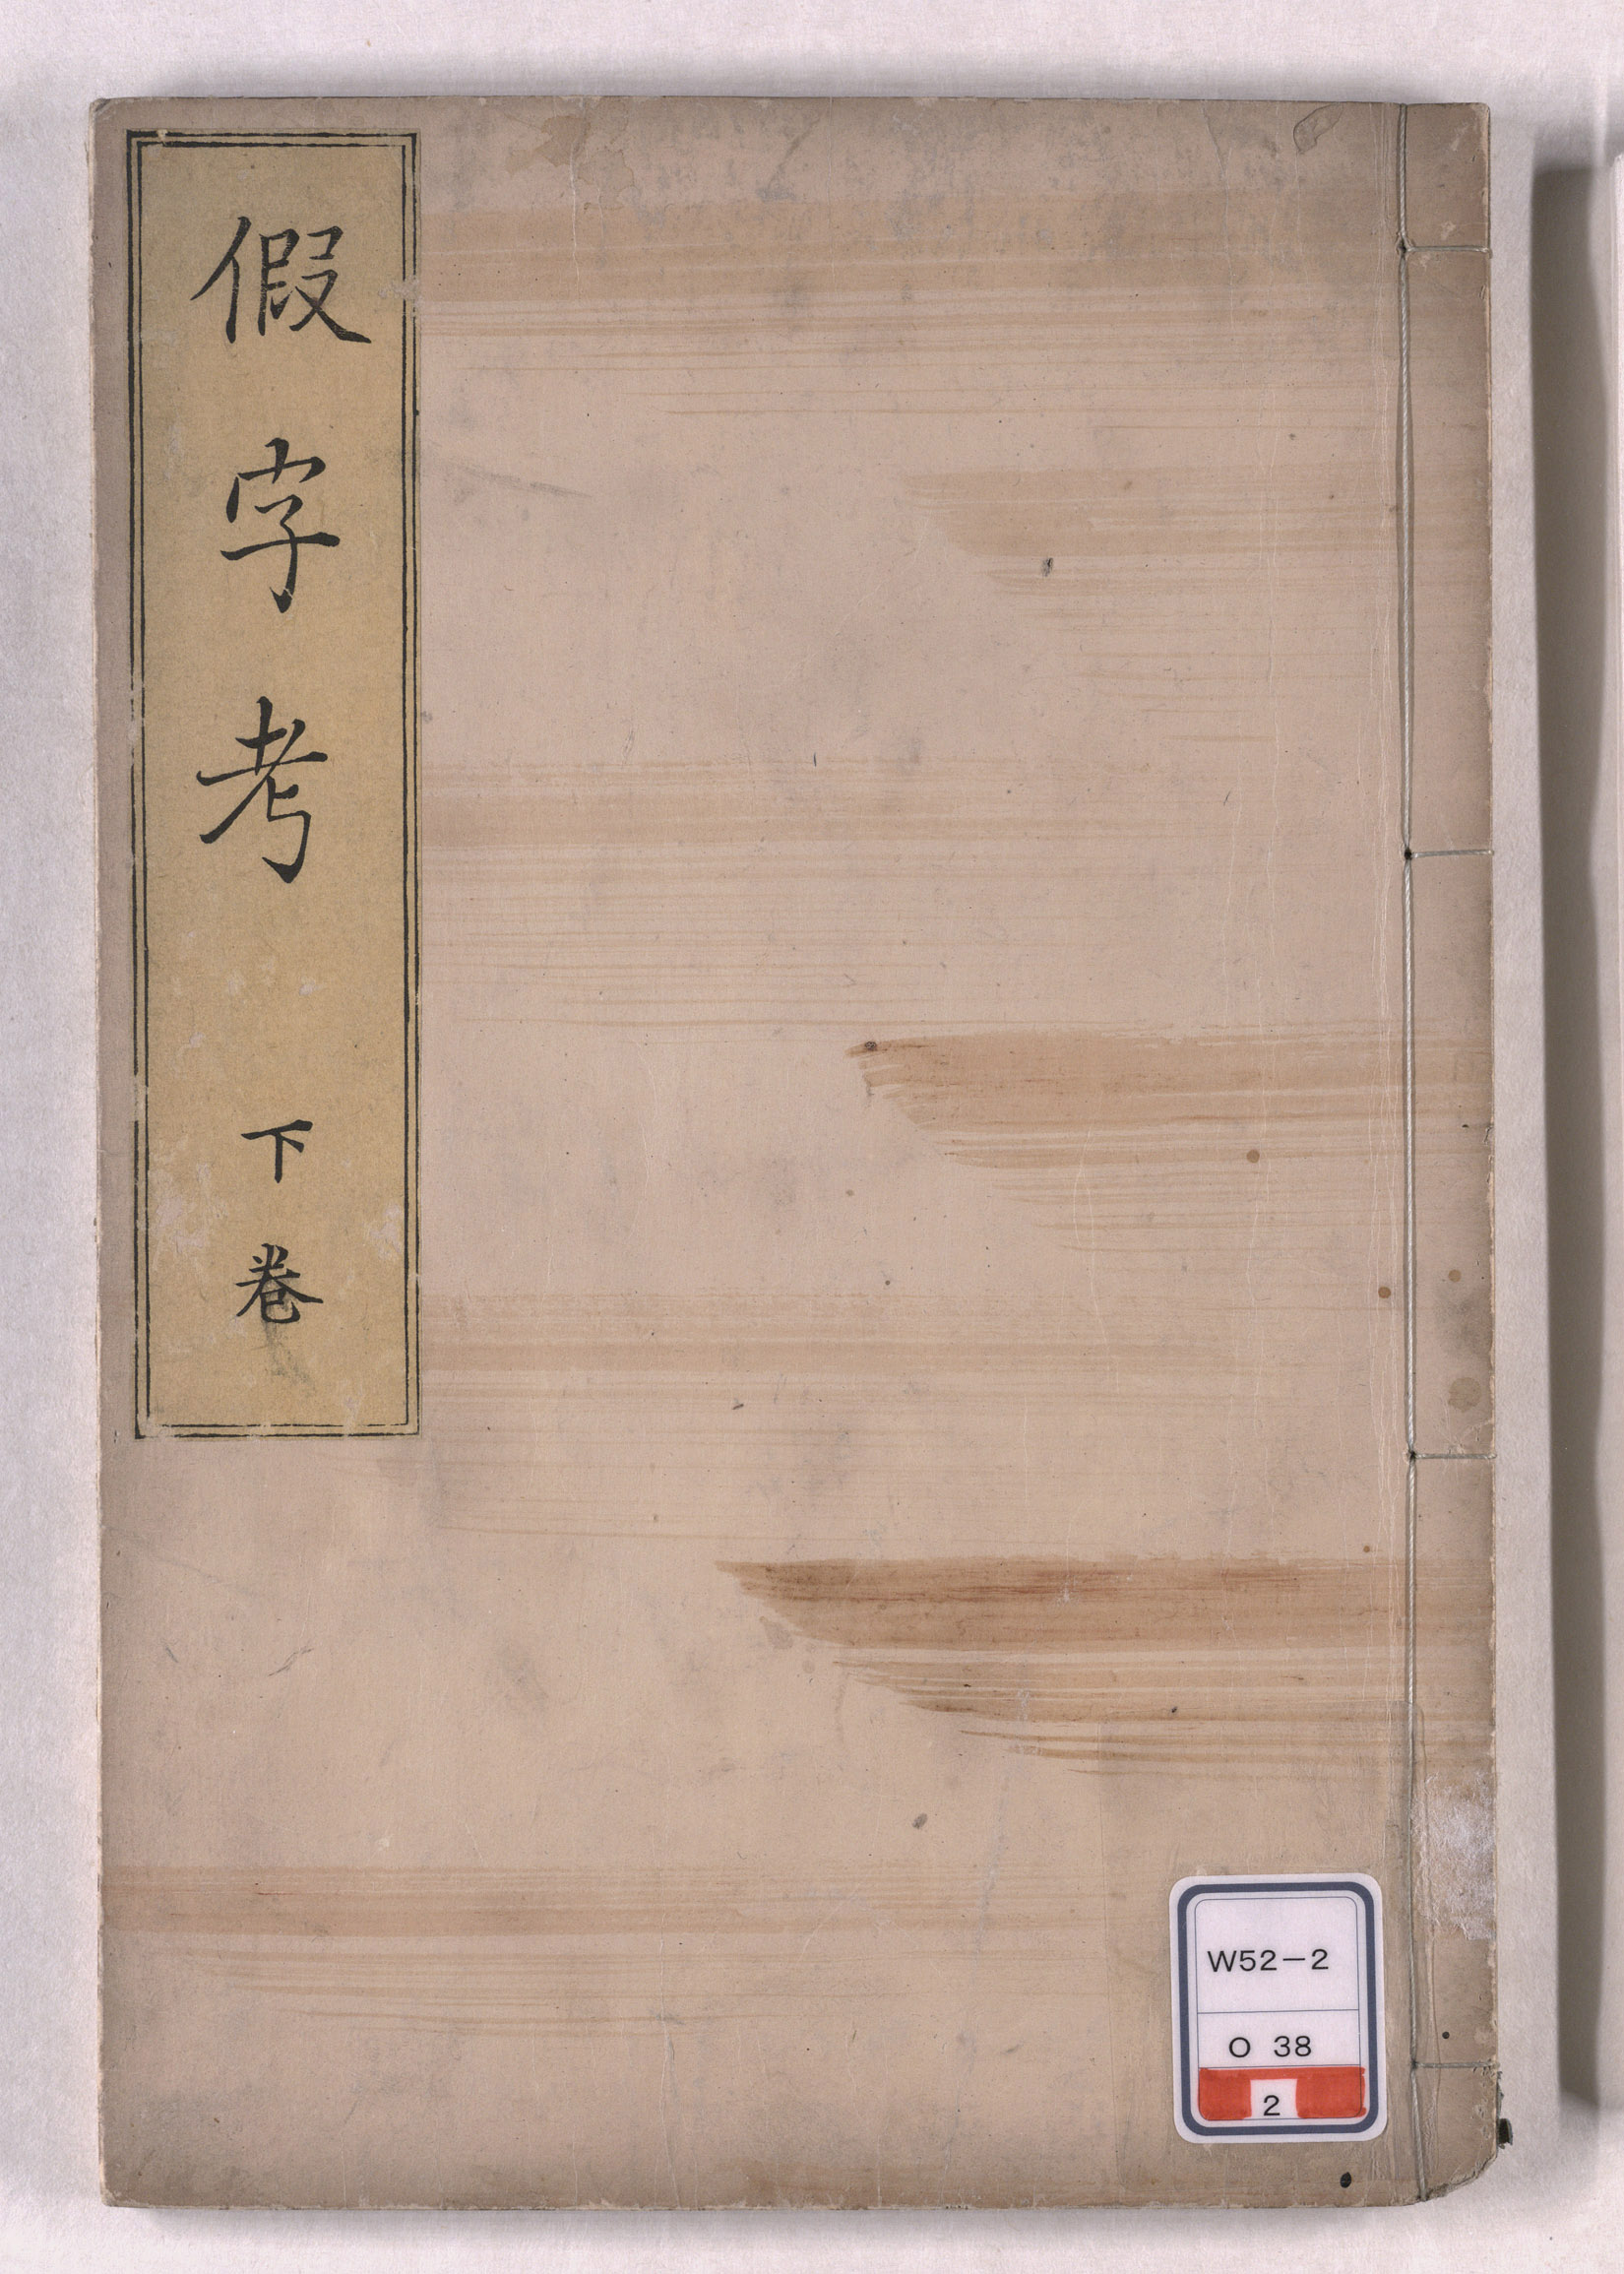 假字考 下巻
W52-2
O 38
2